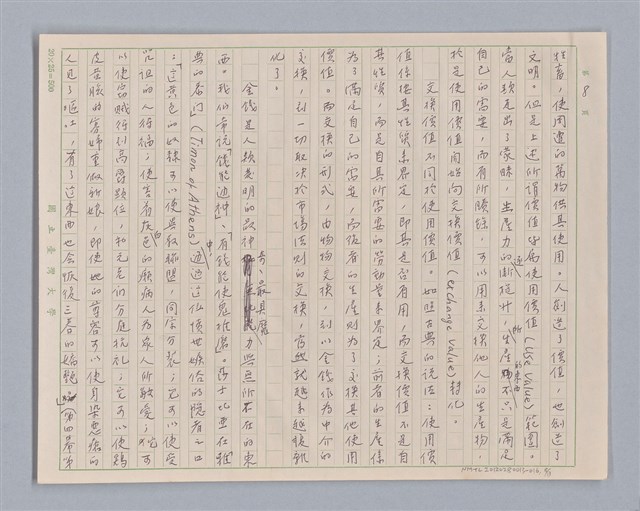 第 8 頁
牲畜，使周遭的萬物供其使用。人創造了價值，也創造了
文明。但是上述所謂價值僅屬使用價值（Use Value）範圍。
當人類走出了蒙昧，生產力的漸進提升，生產的東西不只是滿足
自己的需要，而有所賸餘，可以用來交換他人的生產物，
於是使用價值開始向交換價值（exchange value）轉化。
交換價值不同於使用價值。如照古典的說法：使用價
值係按其性能來界定，即其是否有用，而交換價值不是自
其性質，而是自其所需要的勞動量來界定；前者的生產係
為了滿足自己的需要，而後者的生產則為了交換其他使用
價值。而交換的形式，由物物交換，到以金錢作為中介的
交換，到一切取決於市場法則的交換，當然就越來越複雜
化了。
金錢是人類發明的最神奇、最具魔力與無所不在的東
西。我們常說「錢能通神」、「有錢能使鬼推磨」。莎士比亞在雅
典的泰門（Timon of Athens）中透過這位憤世嫉俗的隱者之口
：「這黃色的奴隸可以使異教聯盟，同宗分裂；它可以使受
咒詛的人得福；使害著灰白色的癩病人為眾人所敬愛；它可
以使竊賊得到高爵顯位，和元老們分庭抗禮；它可以使雞
皮黃臉的寡婦重做新娘，即使她的尊容可以使身染惡瘡的
人見了嘔吐，有了這東西也會恢復三春的嬌艷。」（第四幕第
20×25=500
國立臺灣大學